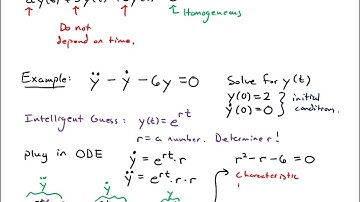 Homogeneous
Do not
depend on time.
Example: ÿ − ẏ − 6y = 0
Solve for y(t)
y(0) = 2
ẏ(0) = 0
initial
condition.
Intelligent Guess: y(t) = e^rt
r = a number. Determine r!
plug in ODE
ẏ = e^rt · r
ÿ = e^rt · r · r
r² − r − 6 = 0
characteristic
ÿ ẏ y